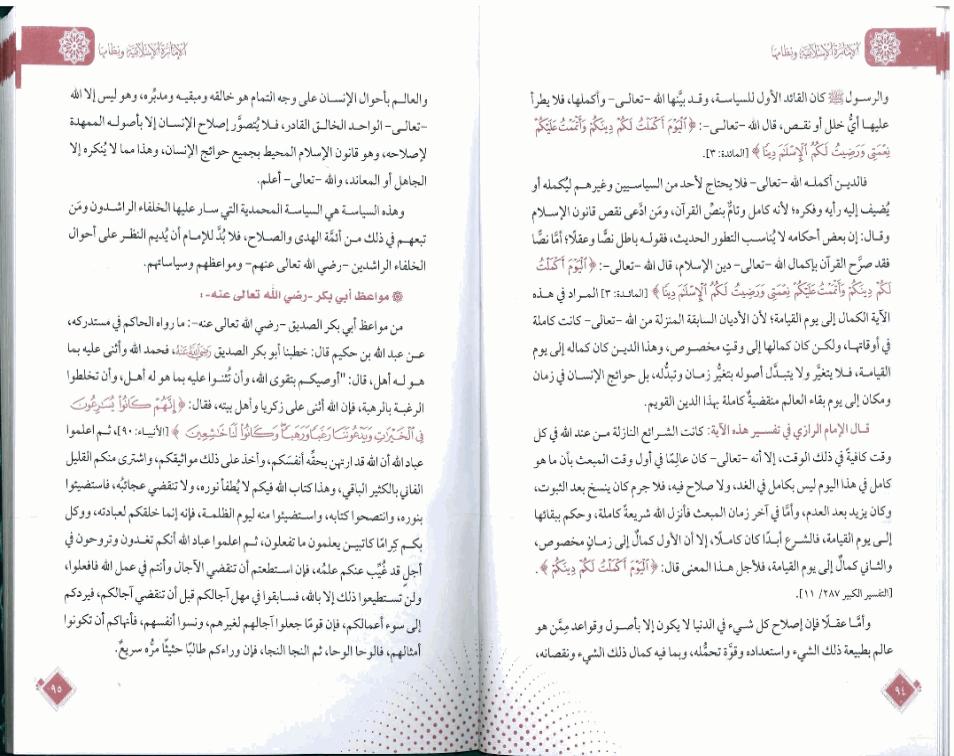 الإمارة الإسلامية ونظامها
والرسول ﷺ كان القائد الأول للسياسة، وقد بيَّنها الله -تعالى- وأكملها، فلا يطرأ
عليها أيُّ خلل أو نقص، قال الله -تعالى-: ﴿ٱلۡيَوۡمَ أَكۡمَلۡتُ لَكُمۡ دِينَكُمۡ وَأَتۡمَمۡتُ عَلَيۡكُمۡ
نِعۡمَتِي وَرَضِيتُ لَكُمُ ٱلۡإِسۡلَٰمَ دِينٗا﴾ [المائدة: ٣].
فالدين أكمله الله -تعالى- فلا يحتاج لأحد من السياسيين وغيرهم ليُكمله أو
يُضيف إليه رأيه وفكره؛ لأنه كامل وتامٌّ بنصِّ القرآن، ومَن ادَّعى نقص قانون الإسلام
وقال: إن بعض أحكامه لا يُناسب التطور الحديث، فقوله باطل نصًّا وعقلًا؛ أمَّا نصًّا
فقد صرَّح القرآن بإكمال الله -تعالى- دين الإسلام، قال الله -تعالى-: ﴿ٱلۡيَوۡمَ أَكۡمَلۡتُ
لَكُمۡ دِينَكُمۡ وَأَتۡمَمۡتُ عَلَيۡكُمۡ نِعۡمَتِي وَرَضِيتُ لَكُمُ ٱلۡإِسۡلَٰمَ دِينٗا﴾ [المائدة: ٣] المراد في هذه
الآية الكمال إلى يوم القيامة؛ لأن الأديان السابقة المنزلة من الله -تعالى- كانت كاملة
في أوقاتها، ولكن كان كمالها إلى وقتٍ مخصوص، وهذا الدين كان كماله إلى يوم
القيامة، فلا يتغيَّر ولا يتبدَّل أصوله بتغيُّر زمان وتبدُّله، بل حوائج الإنسان في زمان
ومكان إلى يوم بقاء العالم منقضيةٌ كاملة بهذا الدين القويم.
قال الإمام الرازي في تفسير هذه الآية: كانت الشرائع النازلة من عند الله في كل
وقت كافيةً في ذلك الوقت، إلا أنه -تعالى- كان عالِمًا في أول وقت المبعث بأن ما هو
كامل في هذا اليوم ليس بكامل في الغد، ولا صلاح فيه، فلا جرم كان ينسخ بعد الثبوت،
وكان يزيد بعد العدم، وأمَّا في آخر زمان المبعث فأنزل الله شريعةً كاملة، وحكم ببقائها
إلى يوم القيامة، فالشرع أبدًا كان كاملًا، إلا أن الأول كمالٌ إلى زمانٍ مخصوص،
والثاني كمالٌ إلى يوم القيامة، فلأجل هذا المعنى قال: ﴿ٱلۡيَوۡمَ أَكۡمَلۡتُ لَكُمۡ دِينَكُمۡ﴾.
[التفسير الكبير ٢٨٧/ ١١].
وأمَّا عقلًا فإن إصلاح كل شيء في الدنيا لا يكون إلا بأصول وقواعد مِمَّن هو
عالم بطبيعة ذلك الشيء واستعداده وقوَّة تحمُّله، وبما فيه كمال ذلك الشيء ونقصانه،
٩٤
الإمارة الإسلامية ونظامها
والعالم بأحوال الإنسان على وجه التمام هو خالقه ومبقيه ومدبِّره، وهو ليس إلا الله
-تعالى- الواحد الخالق القادر، فلا يُتصوَّر إصلاح الإنسان إلا بأصوله الممهدة
لإصلاحه، وهو قانون الإسلام المحيط بجميع حوائج الإنسان، وهذا مما لا يُنكره إلا
الجاهل أو المعاند، والله -تعالى- أعلم.
وهذه السياسة هي السياسة المحمدية التي سار عليها الخلفاء الراشدون ومَن
تبعهم في ذلك من أئمَّة الهدى والصلاح، فلا بُدَّ للإمام أن يُديم النظر على أحوال
الخلفاء الراشدين -رضي الله تعالى عنهم- ومواعظهم وسياساتهم.
مواعظ أبي بكر -رضي الله تعالى عنه- :
من مواعظ أبي بكر الصديق -رضي الله تعالى عنه-: ما رواه الحاكم في مستدركه،
عن عبد الله بن حكيم قال: خطبنا أبو بكر الصديق رضي الله عنه، فحمد الله وأثنى عليه بما
هو له أهل، قال: "أوصيكم بتقوى الله، وأن تُثنوا عليه بما هو له أهل، وأن تخلطوا
الرغبة بالرهبة، فإن الله أثنى على زكريا وأهل بيته، فقال: ﴿إِنَّهُمۡ كَانُواْ يُسَٰرِعُونَ
فِي ٱلۡخَيۡرَٰتِ وَيَدۡعُونَنَا رَغَبٗا وَرَهَبٗاۖ وَكَانُواْ لَنَا خَٰشِعِينَ﴾ [الأنبياء: ٩٠]، ثم اعلموا
عباد الله أن الله قد ارتهن بحقِّه أنفسَكم، وأخذ على ذلك مواثيقكم، واشترى منكم القليل
الفاني بالكثير الباقي، وهذا كتاب الله فيكم لا يُطفأ نوره، ولا تنقضي عجائبُه، فاستضيئوا
بنوره، وانتصحوا كتابه، واستضيئوا منه ليوم الظلمة، فإنه إنما خلقكم لعبادته، ووكل
بكم كِرامًا كاتبين يعلمون ما تفعلون، ثم اعلموا عباد الله أنكم تغدون وتروحون في
أجلٍ قد غُيِّب عنكم علمُه، فإن استطعتم أن تنقضي الآجال وأنتم في عمل الله فافعلوا،
ولن تستطيعوا ذلك إلا بالله، فسابقوا في مهل آجالكم قبل أن تنقضي آجالكم، فيردكم
إلى سوء أعمالكم، فإن قومًا جعلوا آجالهم لغيرهم، ونسوا أنفسهم، فأنهاكم أن تكونوا
أمثالهم، فالوحا الوحا، ثم النجا النجا، فإن وراءكم طالبًا حثيثًا مرُّه سريعٌ.
٩٥